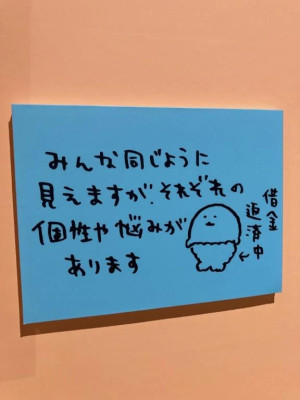 みんな同じように
見えますが、それぞれの
個性や悩みが
あります
借金
返済中